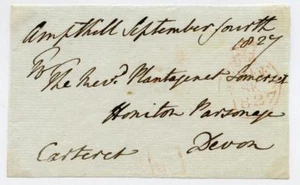 Ampthill September fourth
1827
To
The Revd. Plantagenet Somerset
Honiton Parsonage
Devon
Carteret
1827